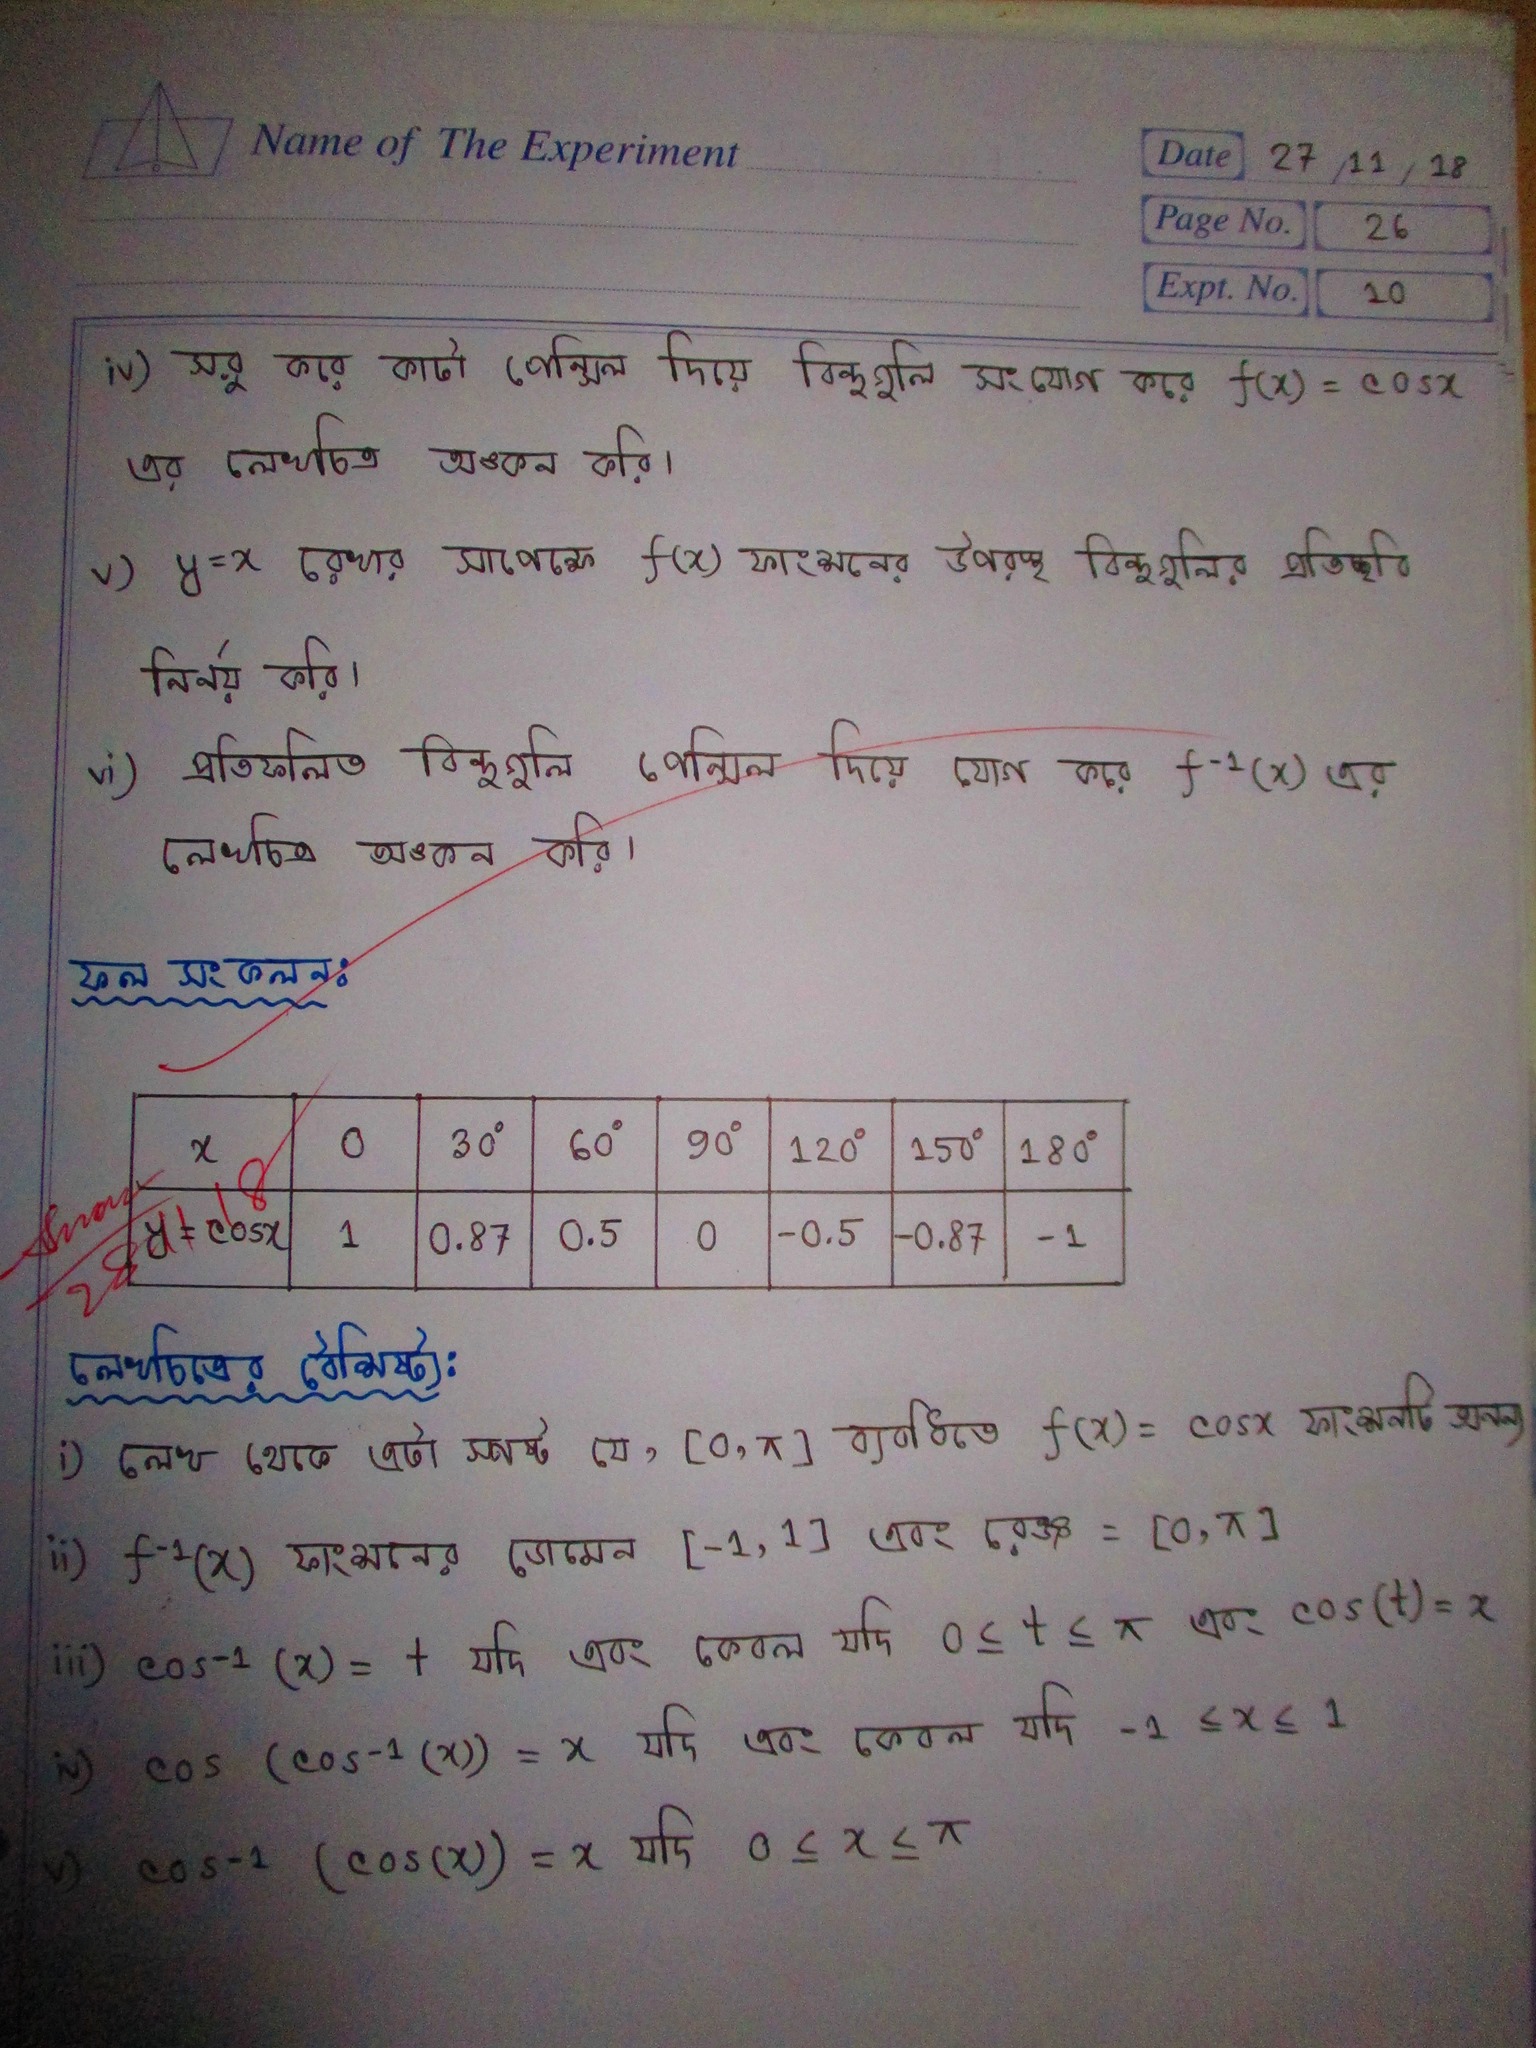 Name of The Experiment
Date 27/11/18
Page No. 26
Expt. No. 10
iv) সরু করে কাটা পেন্সিল দিয়ে বিন্দুগুলি সংযোগ করে f(x) = cosx
এর লেখচিত্র অঙকন করি।
v) y=x রেখার সাপেক্ষে f(x) ফাংশনের উপরস্থ বিন্দুগুলির প্রতিছবি
নির্নয় করি।
vi) প্রতিফলিত বিন্দুগুলি পেন্সিল দিয়ে যোগ করে f⁻¹(x) এর
লেখচিত্র অঙকন করি।
ফল সংকলন:
x 0 30° 60° 90° 120° 150° 180°
y = cosx 1 0.87 0.5 0 -0.5 -0.87 -1
লেখচিত্রের বৈশিষ্ট্য:
i) লেখ থেকে এটা স্পষ্ট যে, [0, π] ব্যবধিতে f(x) = cosx ফাংশনটি অনন্য
ii) f⁻¹(x) ফাংশনের ডোমেন [-1, 1] এবং রেঞ্জ = [0, π]
iii) cos⁻¹(x) = t যদি এবং কেবল যদি 0 ≤ t ≤ π এবং cos(t) = x
iv) cos (cos⁻¹(x)) = x যদি এবং কেবল যদি -1 ≤ x ≤ 1
v) cos⁻¹ (cos(x)) = x যদি 0 ≤ x ≤ π